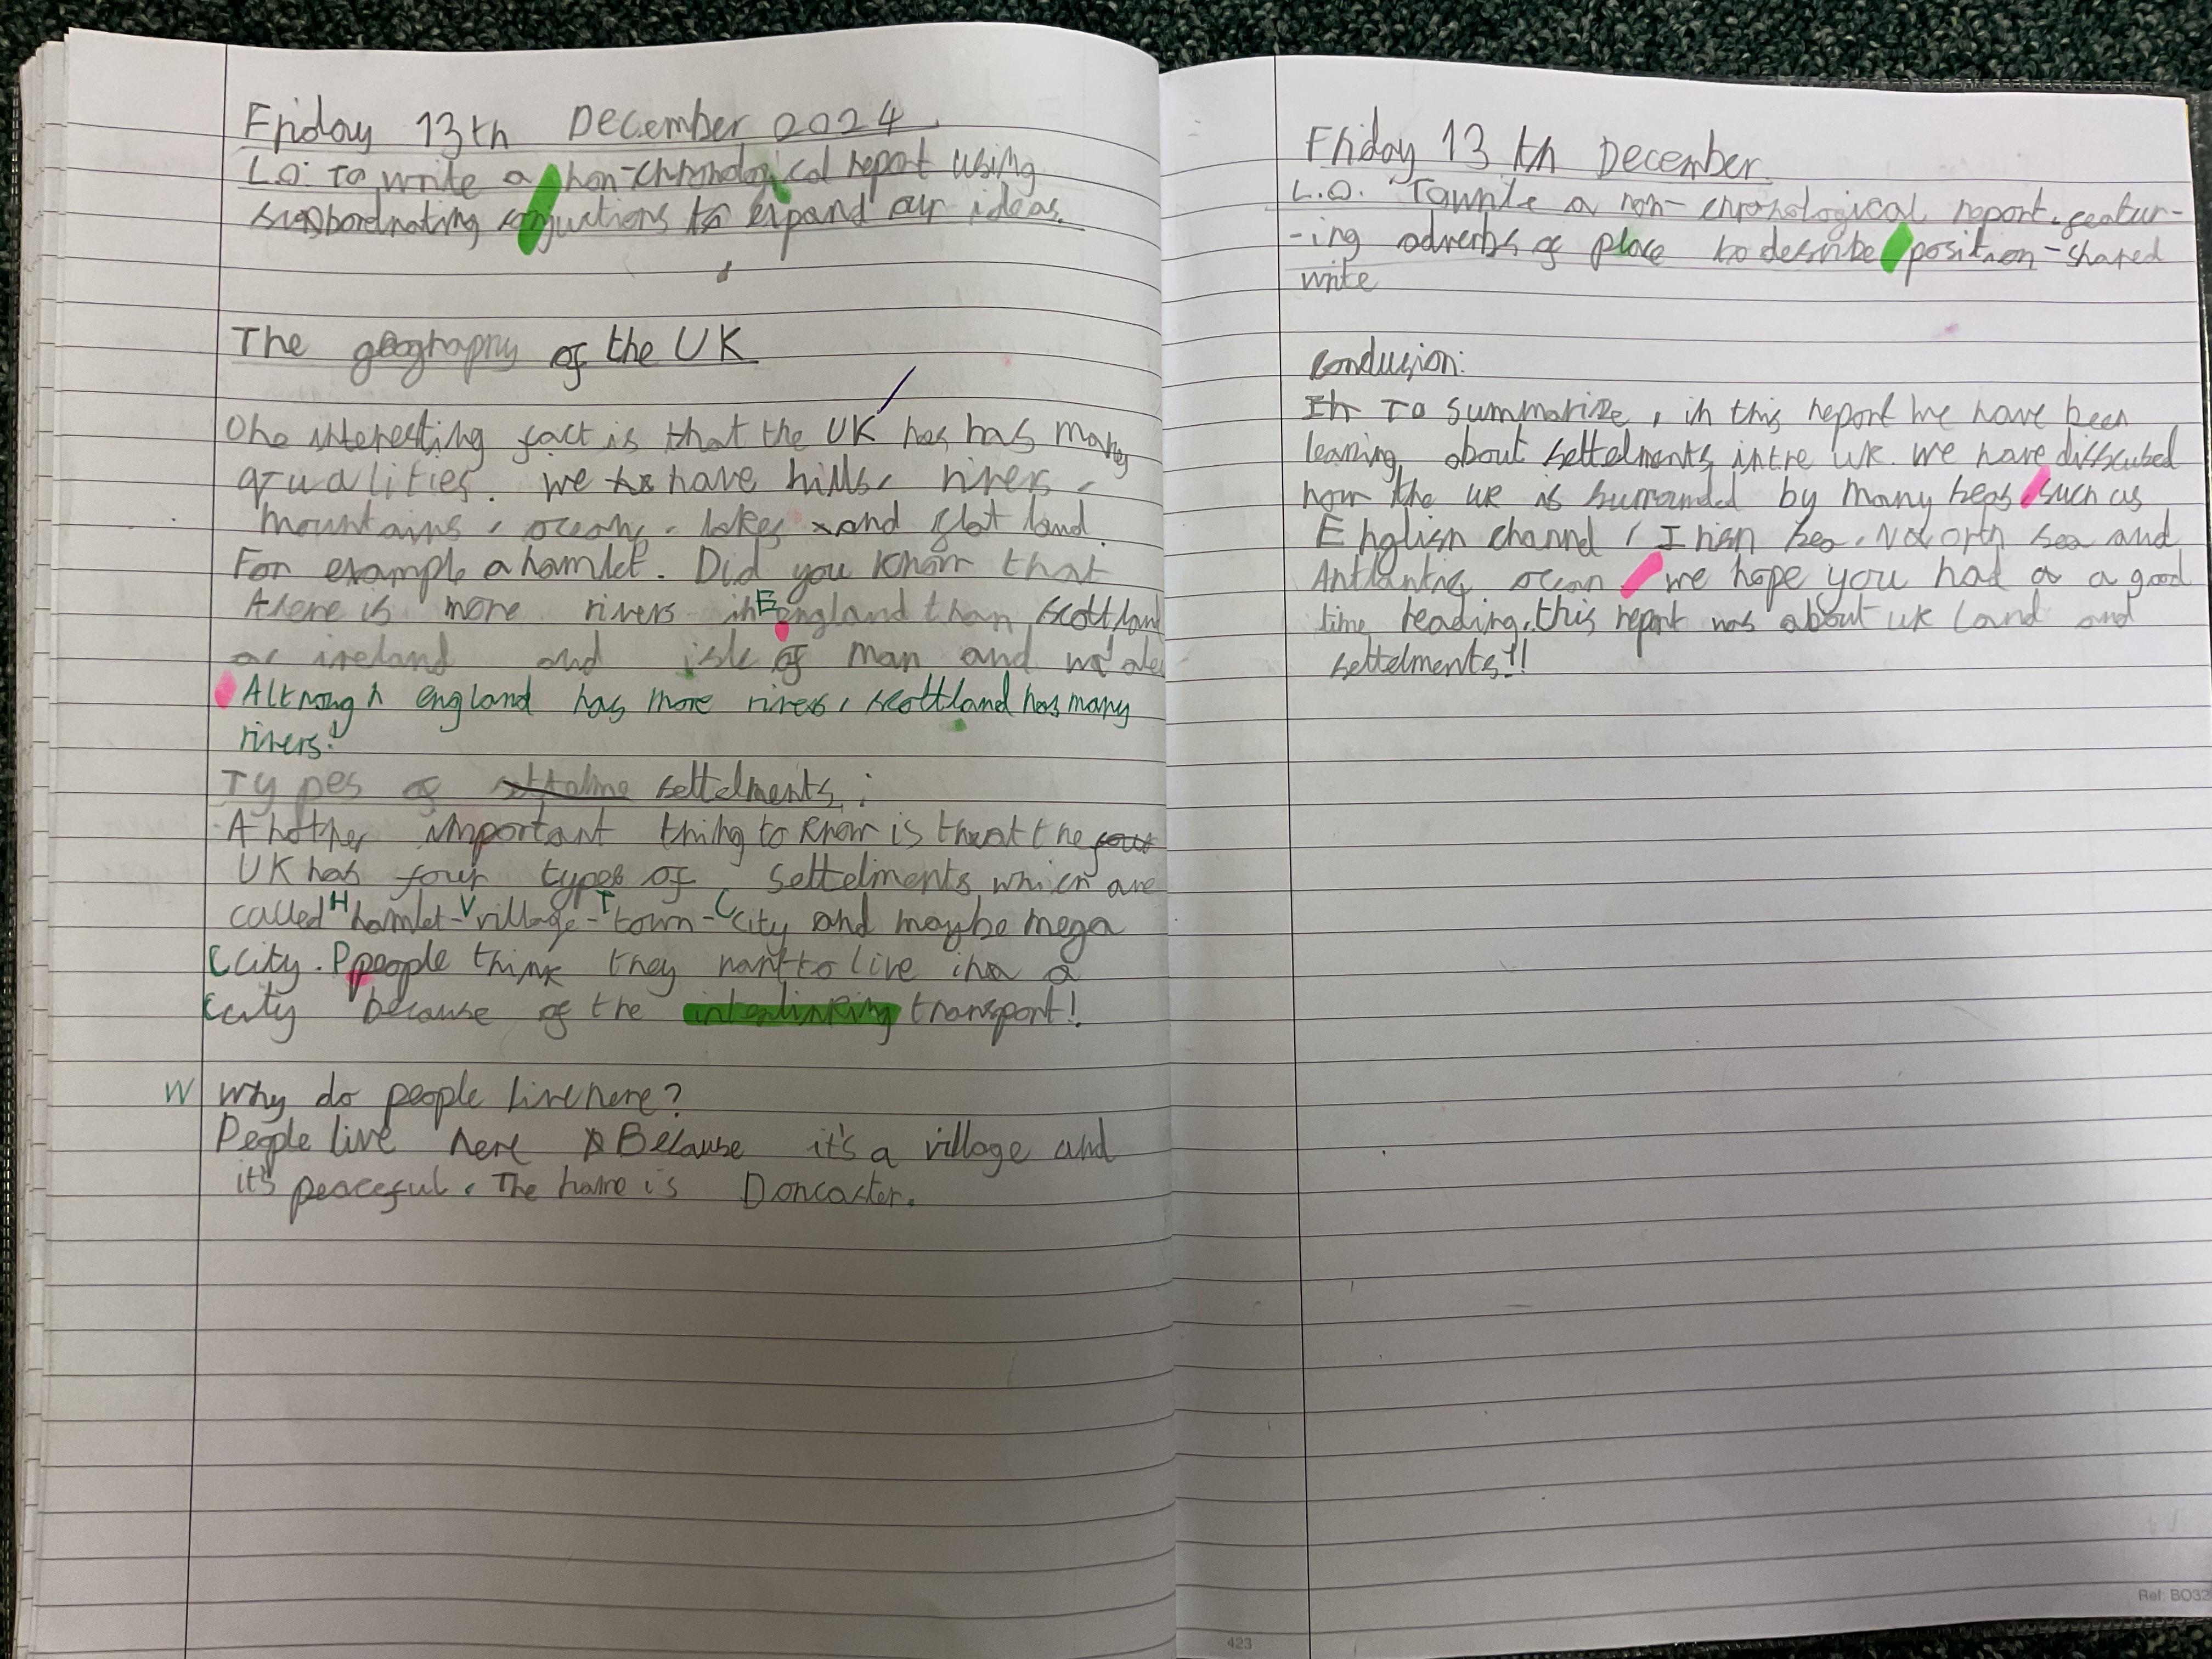 Friday 13th December 2024
L.O: To write a non-chronological report using
subbordnating conjuctions to expand our ideas.
The geography of the UK
One interesting fact is that the UK has has many
qualities. We have hills, rivers,
mountains, oceans, lakes and flat land.
For example a hamlet. Did you know that
there is more rivers in England than scottland
or ireland and isle of man and wales
Although england has more rivers, scottland has many
rivers!
Types of settelments:
Another important thing to know is that the
UK has four types of settelments which are
called Hhamlet-Vvillage-Ttown-Ccity and maybe mega
Ccity. Ppeople think they want to live in a
Ccity because of the interlinking transport!
W Why do people live here?
People live here Because it's a village and
it's peaceful. The name is Doncaster.
Friday 13th December
L.O. To write a non-chronological report featur-
-ing adverbs of place to describe position-shared
write
Conclusion:
It To summarize, in this report we have been
learning about settelments in the UK. We have
how the UK is surrounded by many seas, such as
English channel, Irish sea, North sea and
Antlantic ocean we hope you had a a good
time reading, this report was about UK land and
settelments!!
423
Ref: BO32